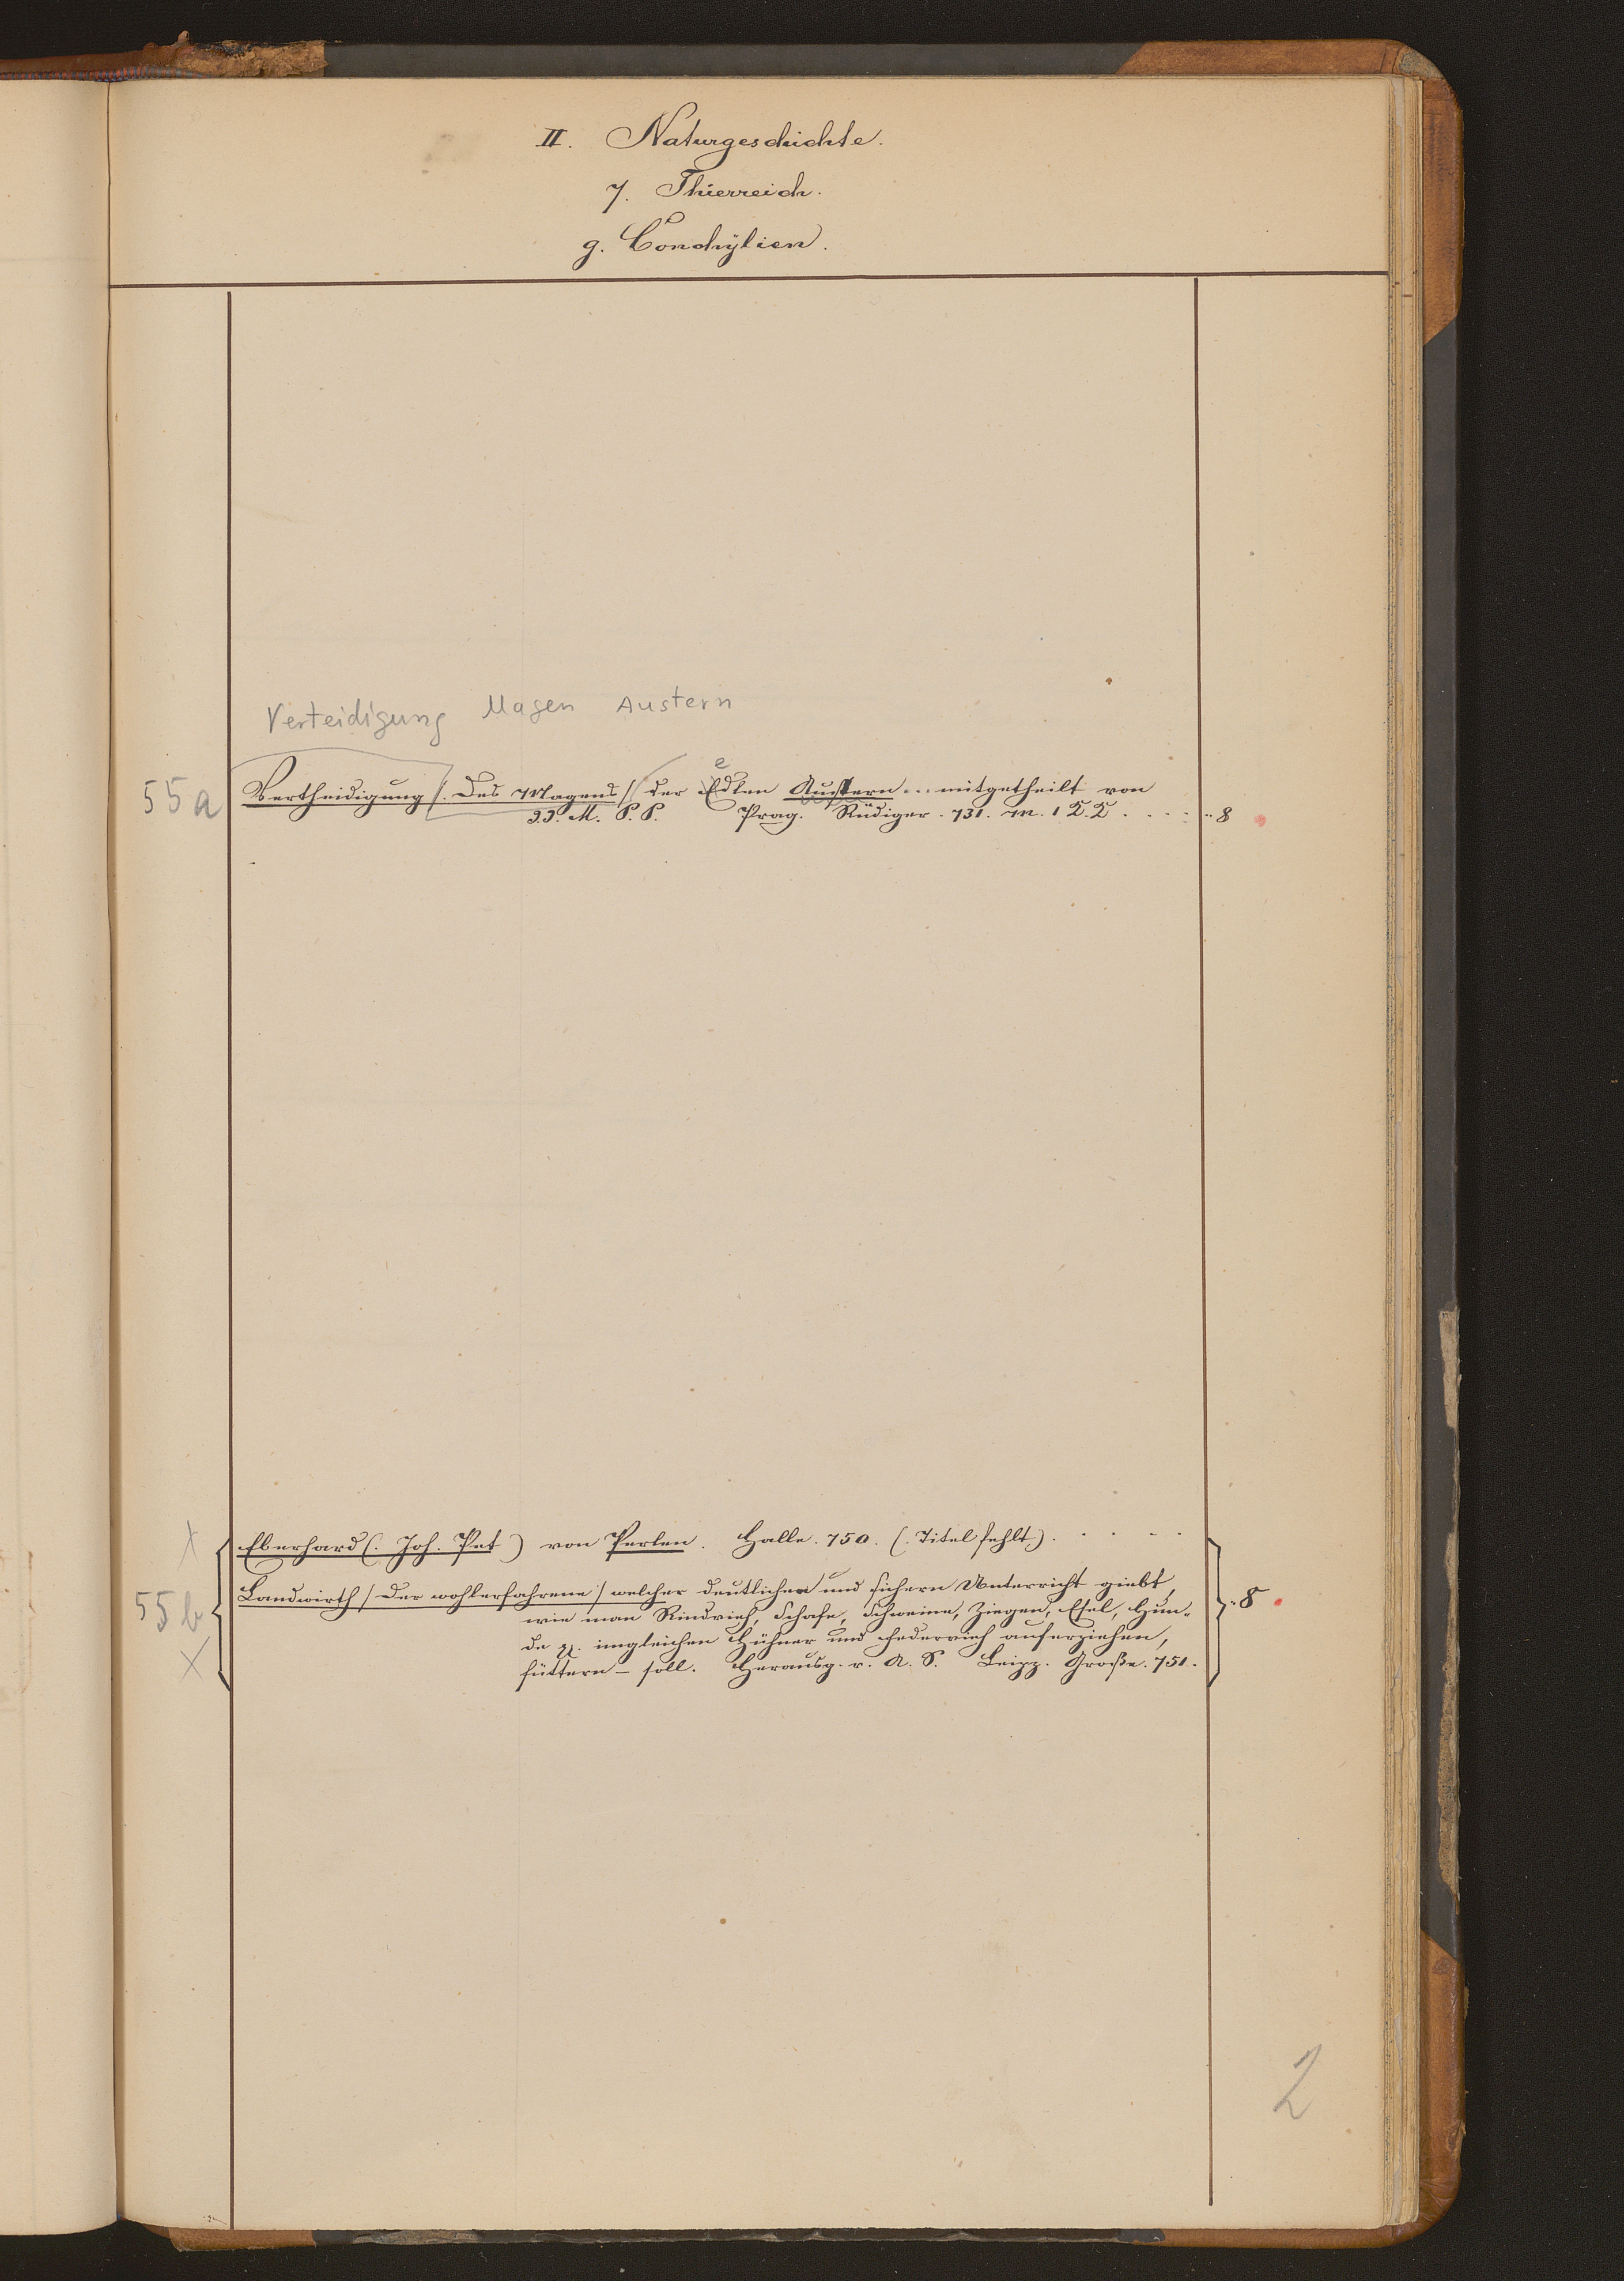 II. Naturgeschichte.
7. Thierreich.
g. Conchÿlien.
Verteidigung Magen Austern
55a
Vertheidigung /: Des Magens :/ der Edlen Austern ... mitgetheilt von
e
J. J. M. P. P. Prag. Rüdiger. 731. m. 1 . . . . 8
Eberhard (: Joh. Pet ) von Perlen. Halle. 750. (: Titel fehlt.) . . . . .
55b
Landwirth / Der wohlerfahrene / welcher deutlichen und sichern Unterricht giebt,
wie man Rindvieh, Schafe, Schweine, Ziegen, Esel, Hun-
de p. imgleichen Hühner und Federvieh auferziehen,
füttern – soll. Herausg. v. A. S. Leipz. Große. 751.
8
2